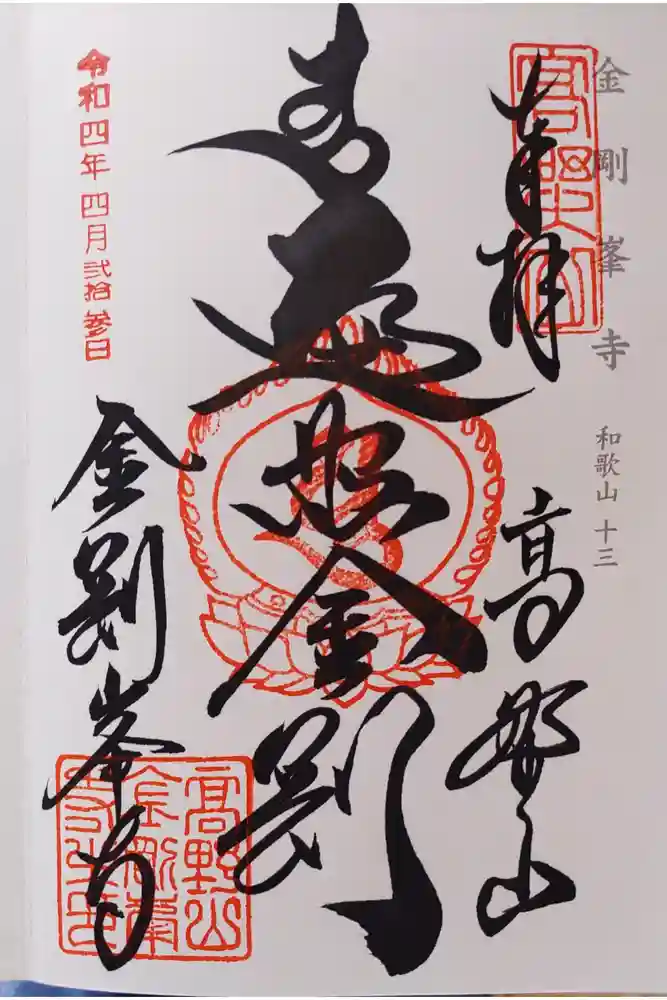 金剛峯寺 和歌山 十三
奉拝
高野山
遍照金剛
金剛峯寺
令和四年四月弐拾参日
高野山
金剛峯
寺之印